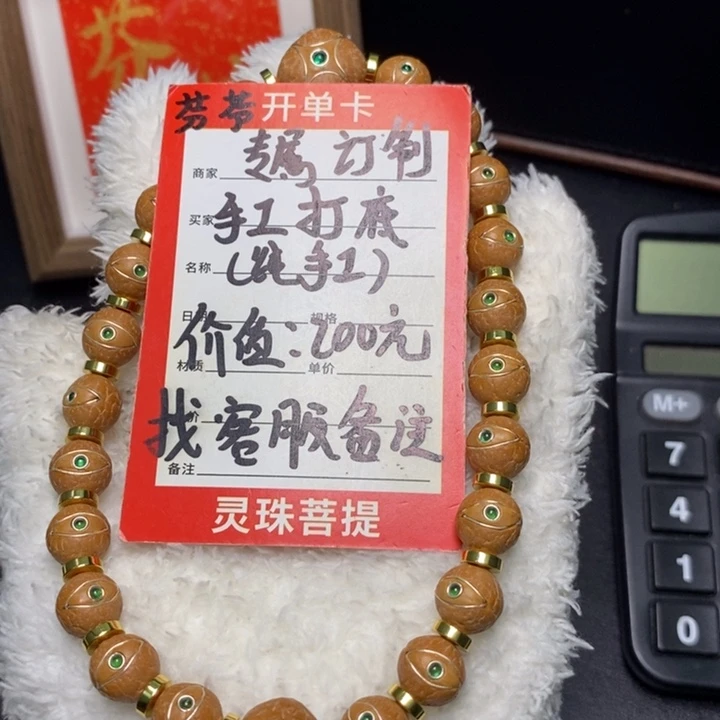 芬芬 开单卡
商家 专属订制
买家 手工打底
名称 (纯手工)
日期 规格
价值:200元
材质 单价
找客服备注
价
备注
灵珠菩提
M+
7
4
1
0